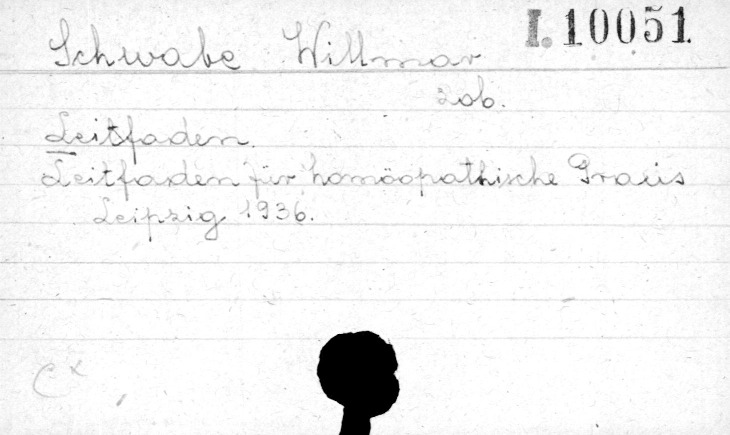 Schwabe Willmar I. 10051
zob.
Leitfaden.
Leitfaden für homöopathische Praxis
Leipzig 1936.
C x